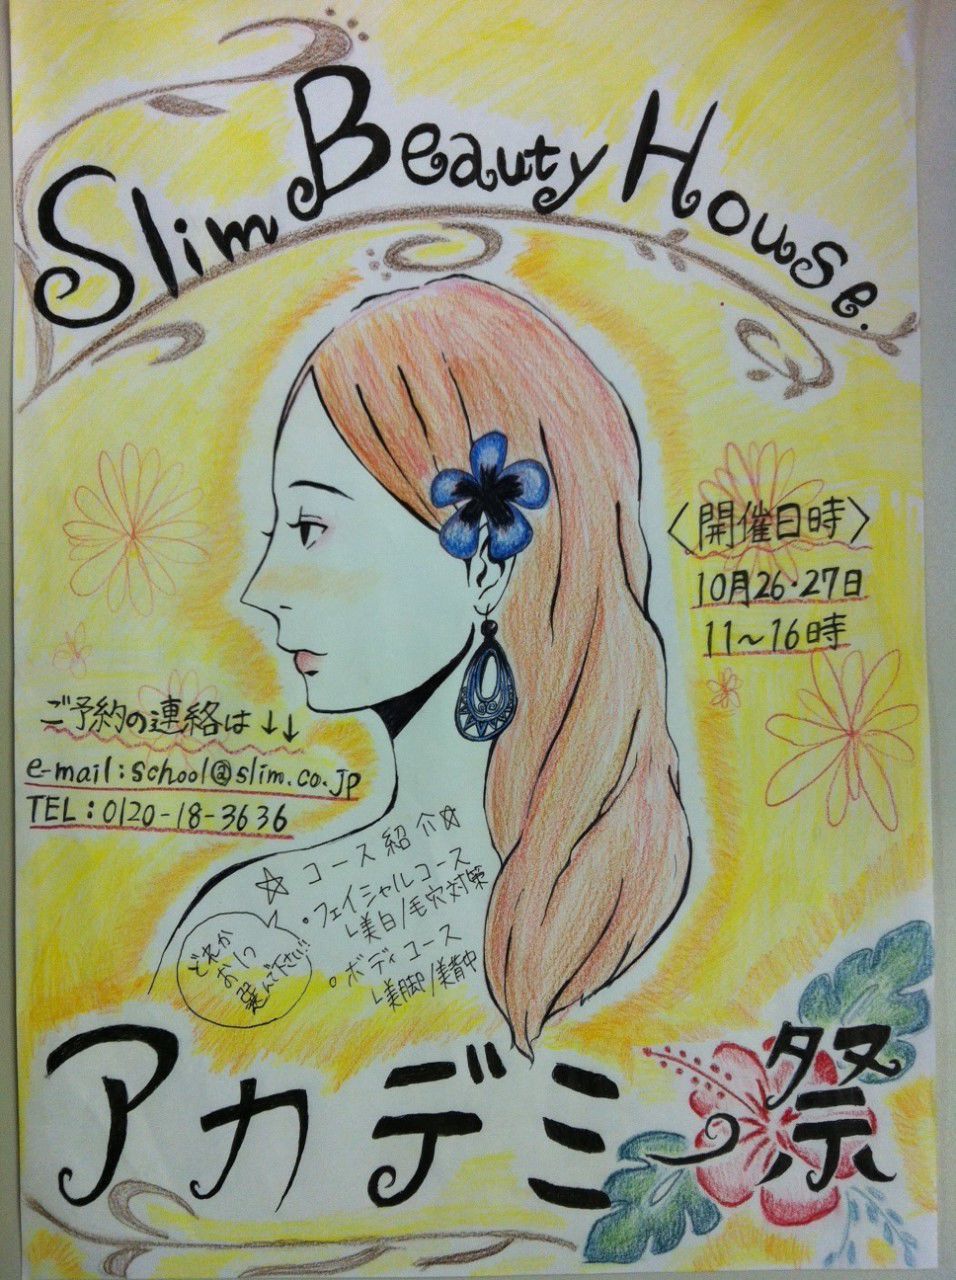 Slim Beauty House.
〈開催日時〉
10月26・27日
11〜16時
ご予約の連絡は↓↓
e-mail:school@slim.co.jp
TEL:0120-18-3636
☆コース紹介☆
・フェイシャルコース
└美白/毛穴対策
・ボディコース
└美脚/美背中
どれか
お1つ
選んで下さい!!
アカデミー祭